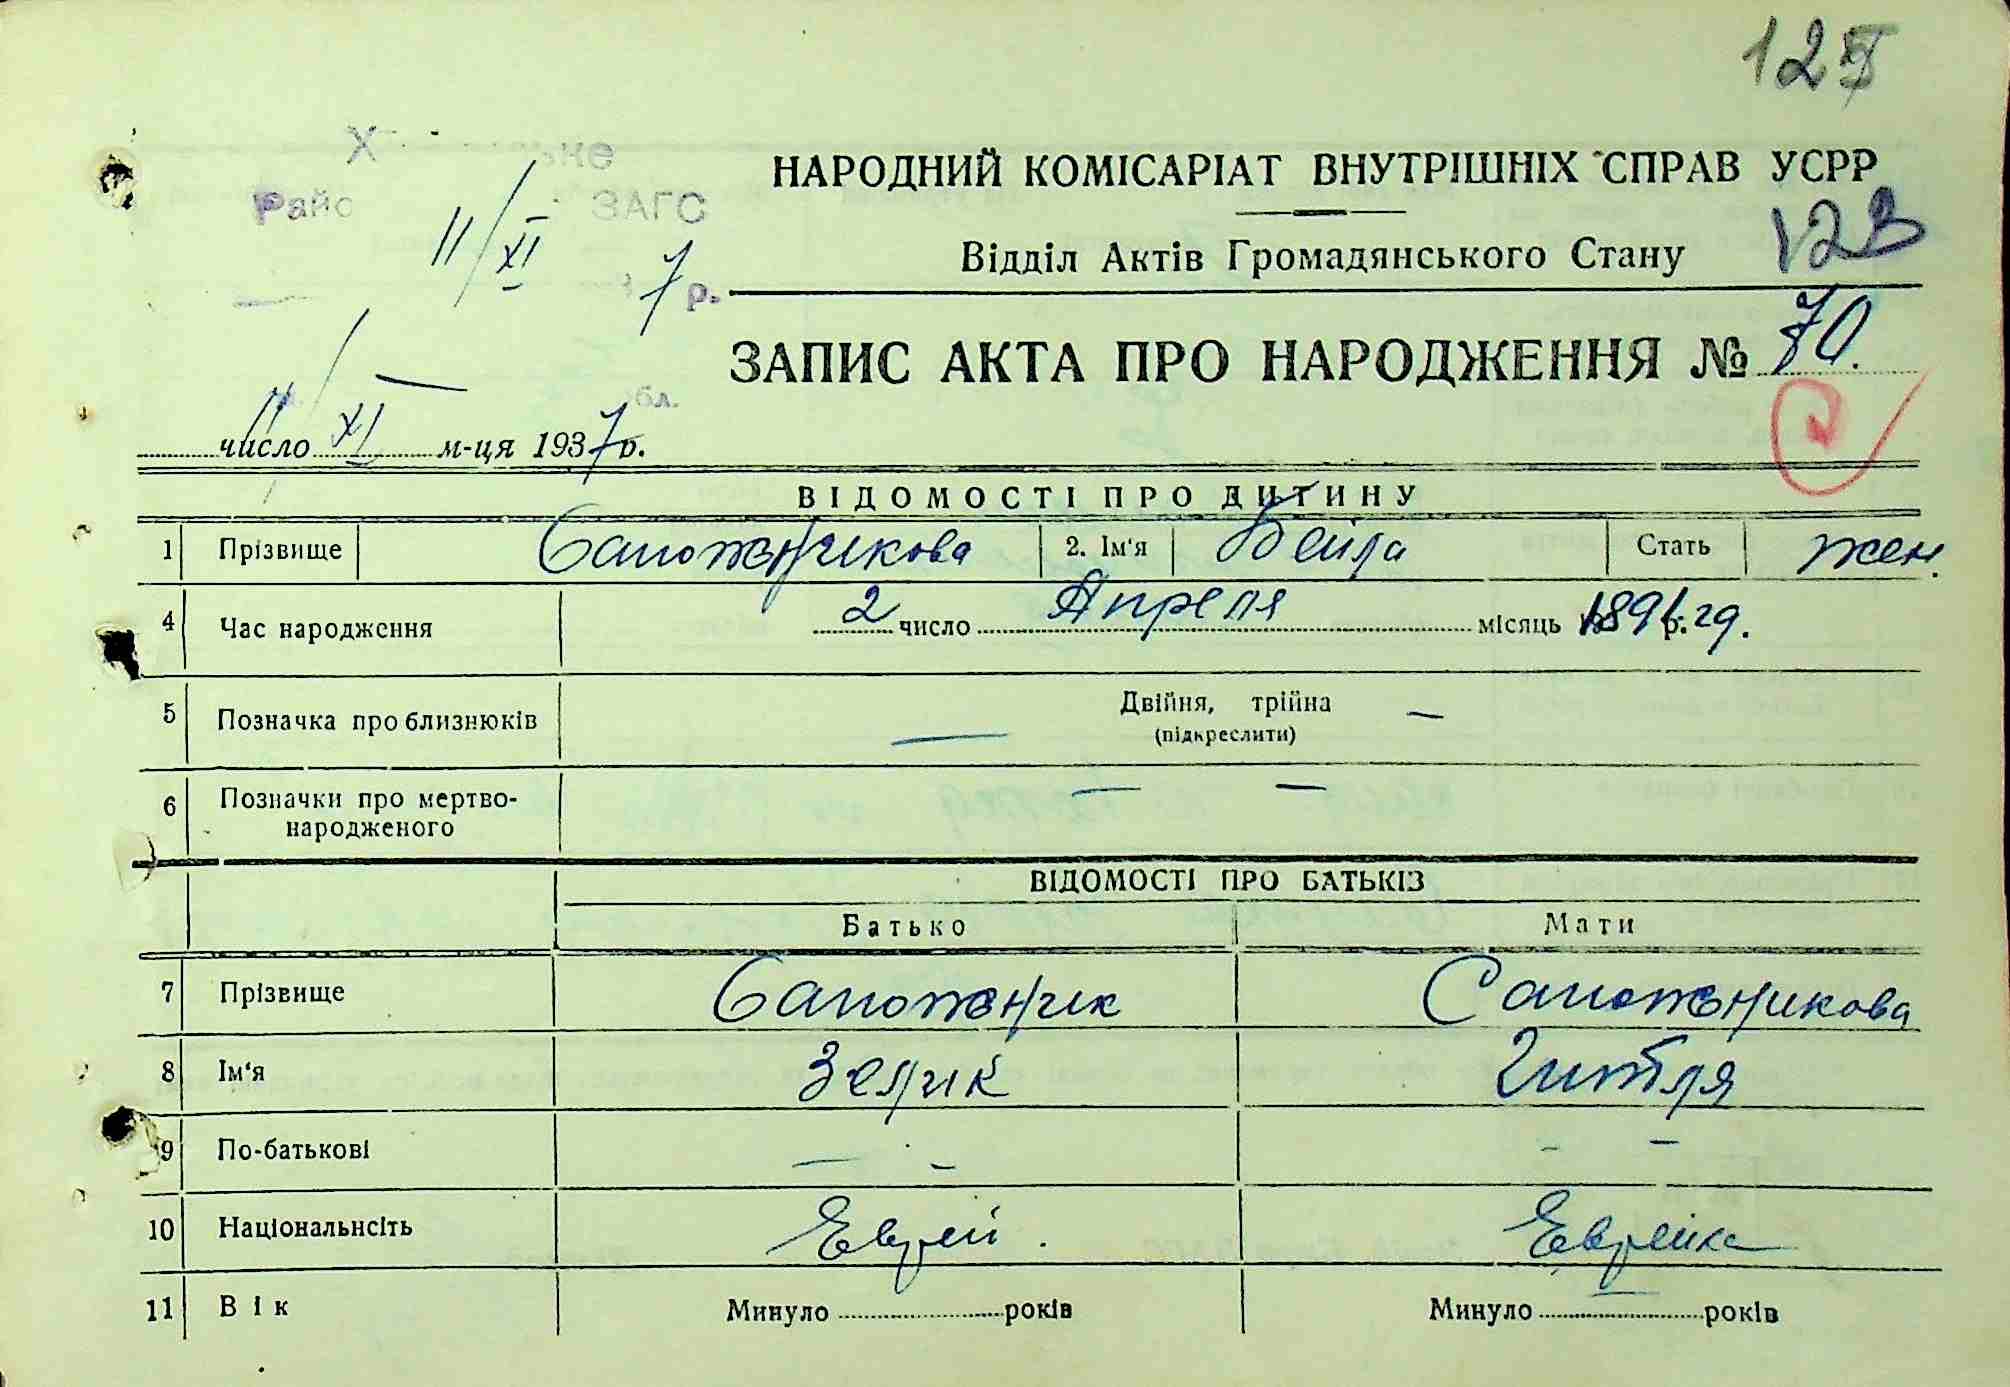 125
ЗАГС
11/XI 7 р.
НАРОДНИЙ КОМІСАРІАТ ВНУТРІШНІХ СПРАВ УСРР
Відділ Актів Громадянського Стану
123
ЗАПИС АКТА ПРО НАРОДЖЕННЯ № 70.
11/XI
число XI м-ця 1937 р.
ВІДОМОСТІ ПРО ДИТИНУ
1 Прізвище Сапожникова 2. Ім'я Бейла Стать жен.
4 Час народження 2 число Апреля місяць 1891 р. гд.
5 Позначка про близнюків — Двійня, трійна —
(підкреслити)
6 Позначки про мертво- — —
народженого
ВІДОМОСТІ ПРО БАТЬКІЗ
Батько Мати
7 Прізвище Сапожник Сапожникова
8 Ім'я Зелик Гитля
9 По-батькові — — - —
10 Національнсіть Еврей. Еврейка
11 Вік Минуло років Минуло років